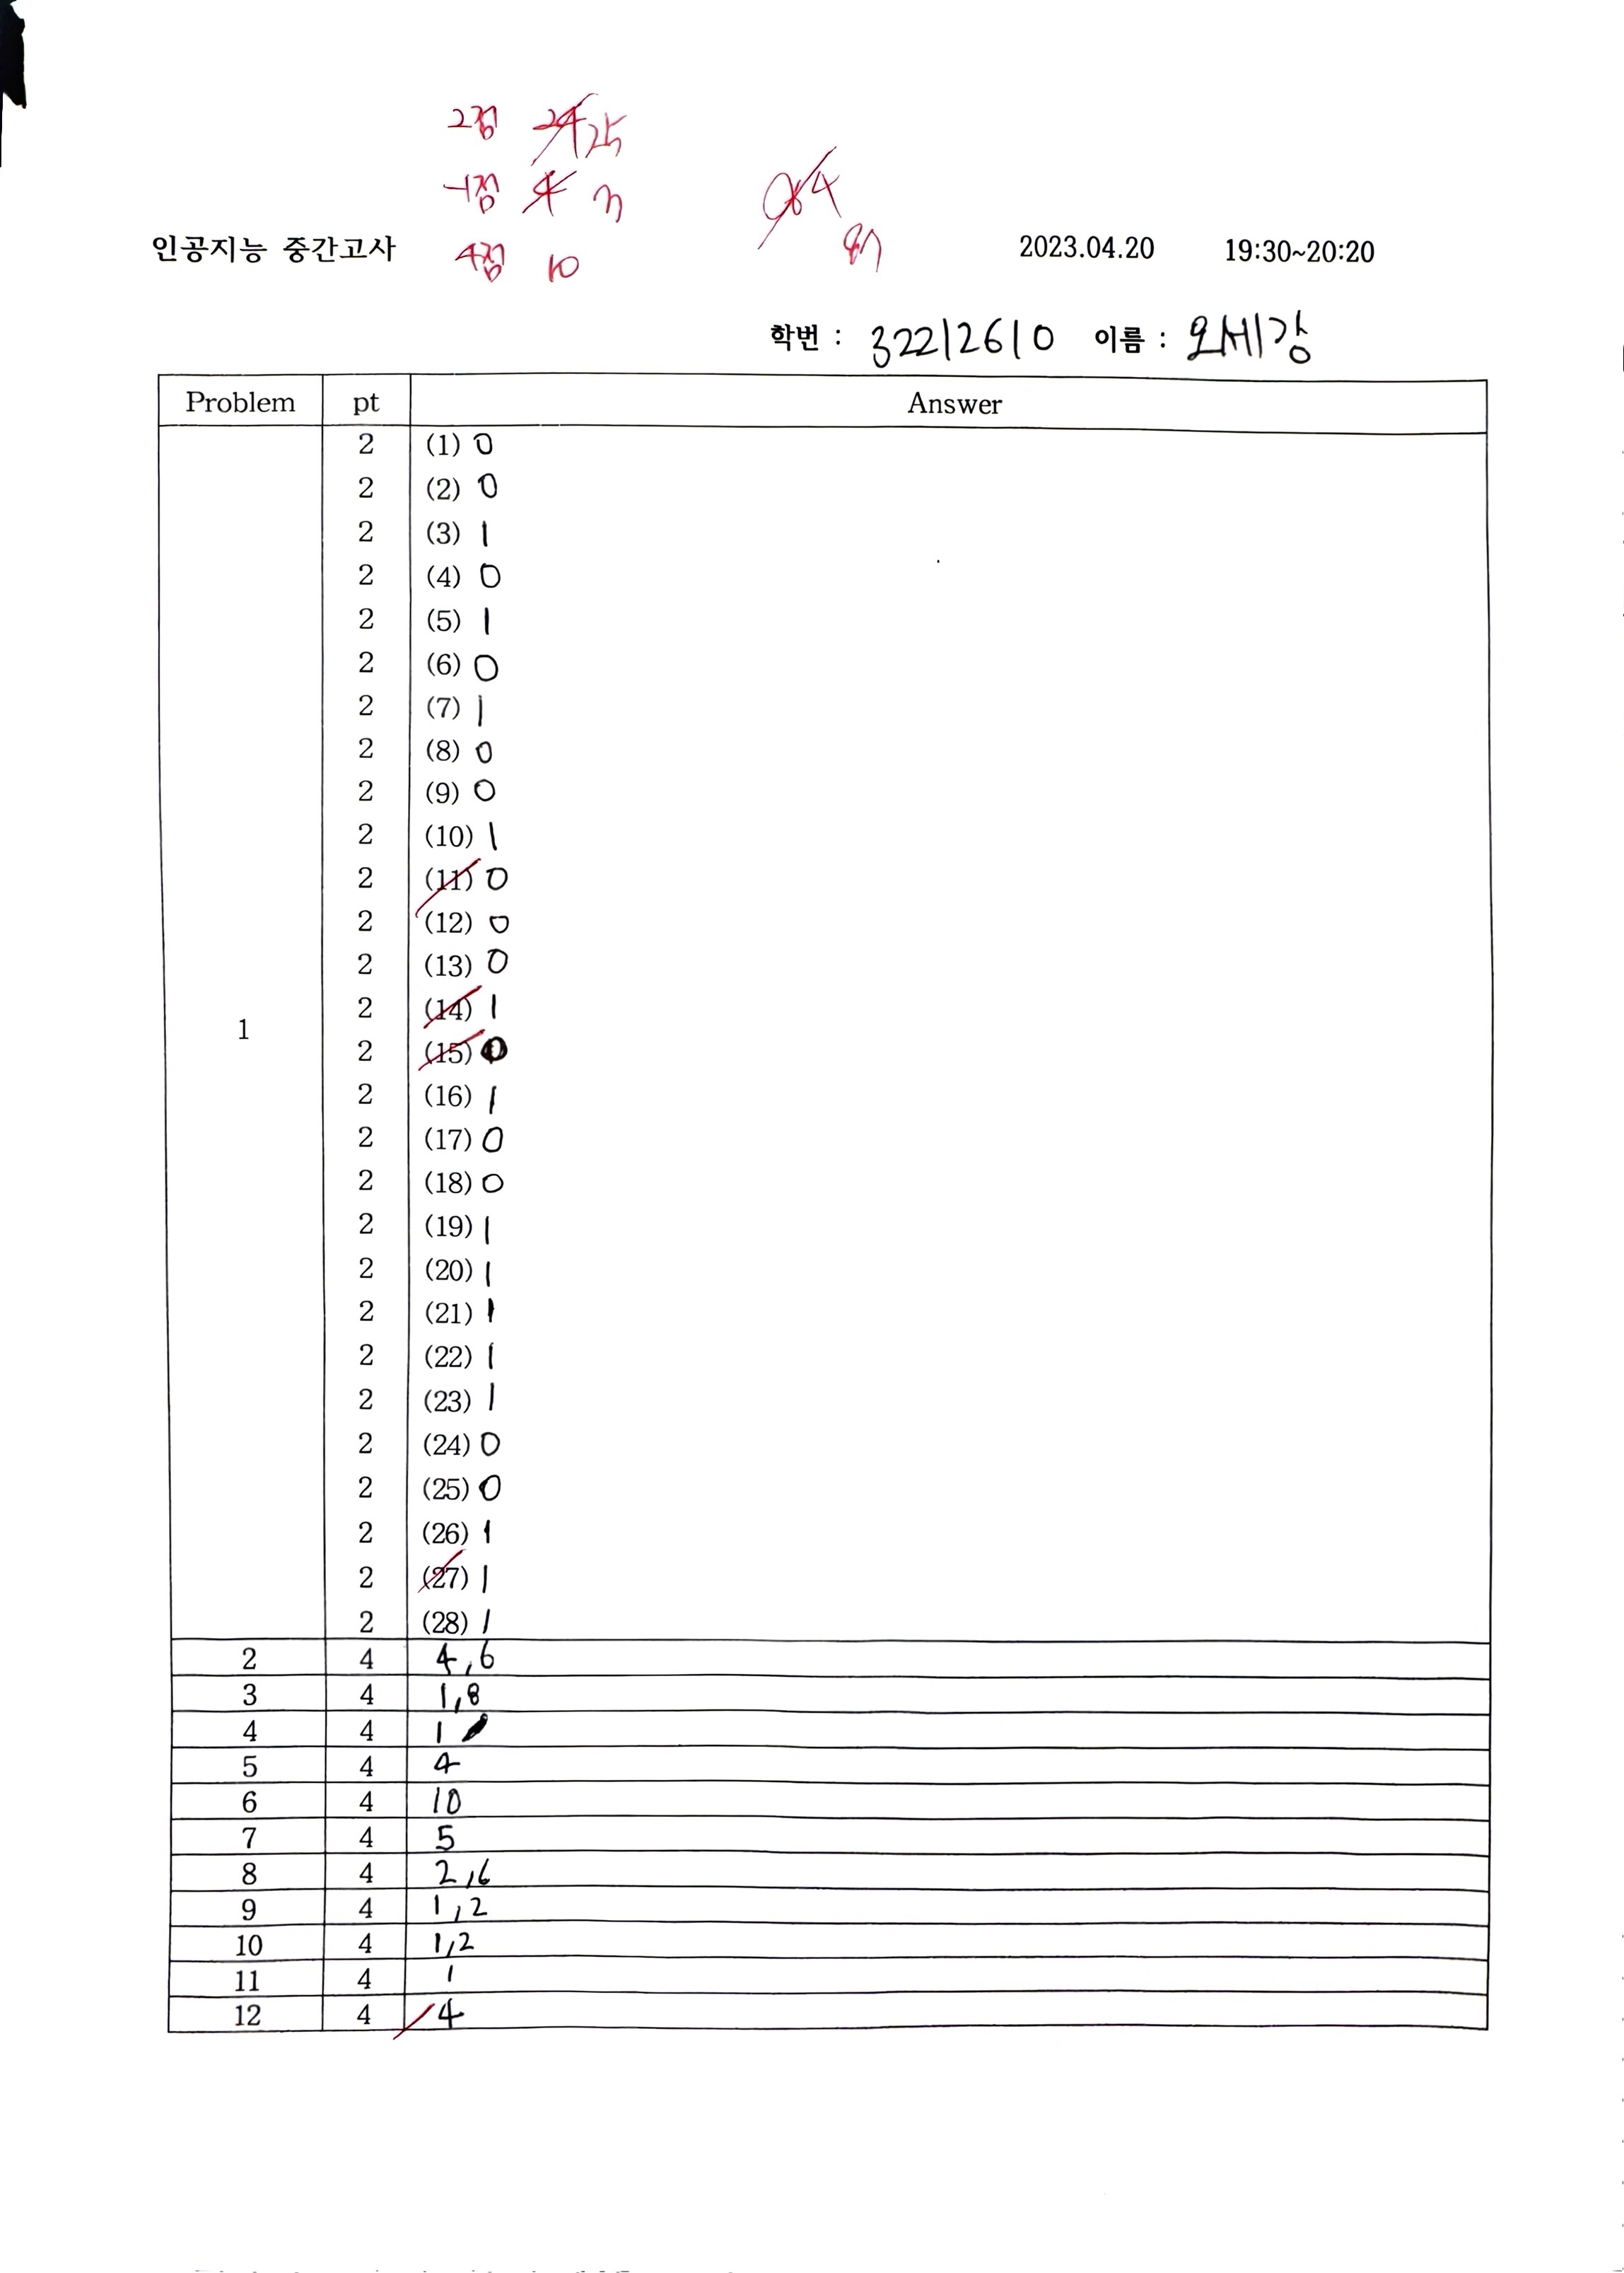 2점 24 25
-1점 4 3
84
87
4점 10
인공지능 중간고사 2023.04.20 19:30~20:20
학번 : 32212610 이름 : 오세강
Problem pt Answer
1
2 (1) 0
2 (2) 0
2 (3) 1
2 (4) 0
2 (5) 1
2 (6) 0
2 (7) 1
2 (8) 0
2 (9) 0
2 (10) 1
2 (11) 0
2 (12) 0
2 (13) 0
2 (14) 1
2 (15) 0
2 (16) 1
2 (17) 0
2 (18) 0
2 (19) 1
2 (20) 1
2 (21) 1
2 (22) 1
2 (23) 1
2 (24) 0
2 (25) 0
2 (26) 1
2 (27) 1
2 (28) 1
2 4 4,6
3 4 1,8
4 4 1
5 4 4
6 4 10
7 4 5
8 4 2,6
9 4 1,2
10 4 1,2
11 4 1
12 4 4